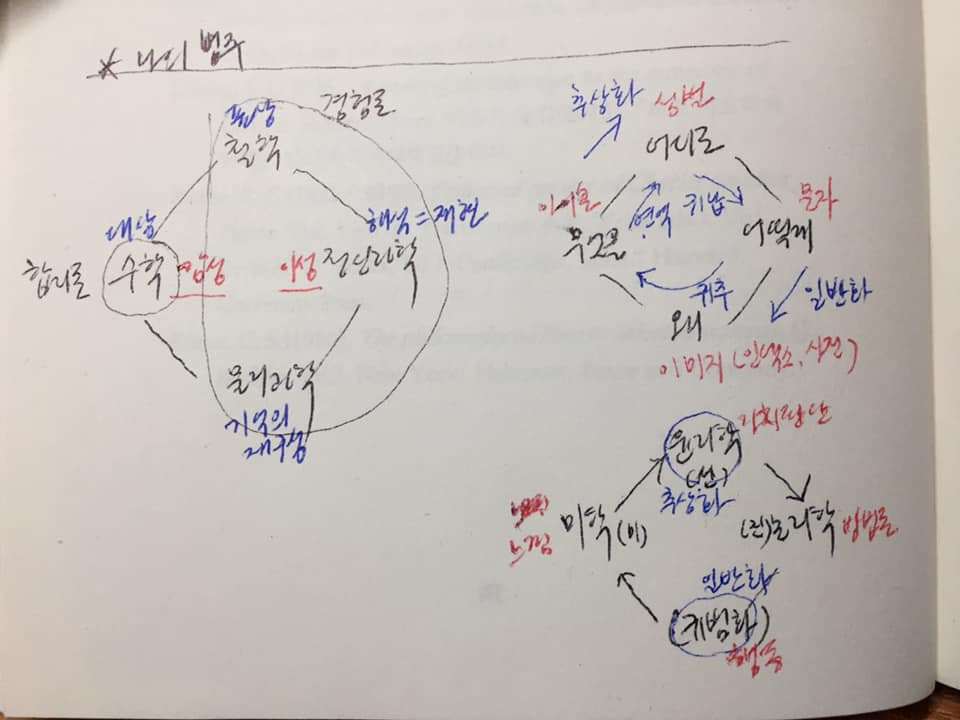 * 나의 범주
표상 경험론
철학
대상
합리론 수학 감성
이성 정신리학
해석=재현
물리학
기억의
재구성
추상화 성벽
어디로
문자
무엇을 연역 귀납 어떻게
귀추 일반화
왜
이미지 (인덱스, 사진)
윤리학 가치판단
(선)
추상화
느낌 미학 (미) (진)논리학 방법론
일반화
(규범화)
행동